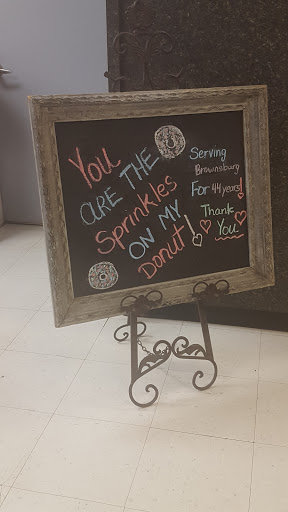 You
ARE THE
Sprinkles
ON MY
DONUT!
Serving
Brownsburg
For 44 years!
Thank
You